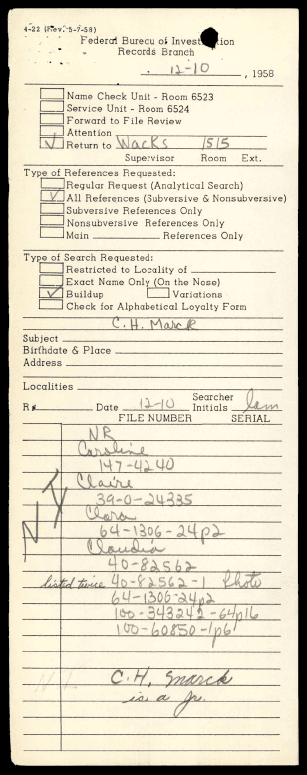 4-22 (Rev. 5-7-58)
Federal Bureau of Investigation
Records Branch
12-10, 1958
Name Check Unit - Room 6523
Service Unit - Room 6524
Forward to File Review
Attention
✓ Return to Wacks 1515
Supervisor Room Ext.
Type of References Requested:
Regular Request (Analytical Search)
✓ All References (Subversive & Nonsubversive)
Subversive References Only
Nonsubversive References Only
Main References Only
Type of Search Requested:
Restricted to Locality of
Exact Name Only (On the Nose)
✓ Buildup Variations
Check for Alphabetical Loyalty Form
C.H. Marck
Subject
Birthdate & Place
Address
Localities
R# Date 12-10 Searcher Initials
FILE NUMBER SERIAL
NR
Caroline
147-4240
Claire
39-0-24335
Clara
64-1306-24p2
Claudia
40-82562
listed twice 40-82562-1 Photo
64-1306-24p2
100-343242-64p16
100-60850-1p61
C.H. Marck
is a Jr.